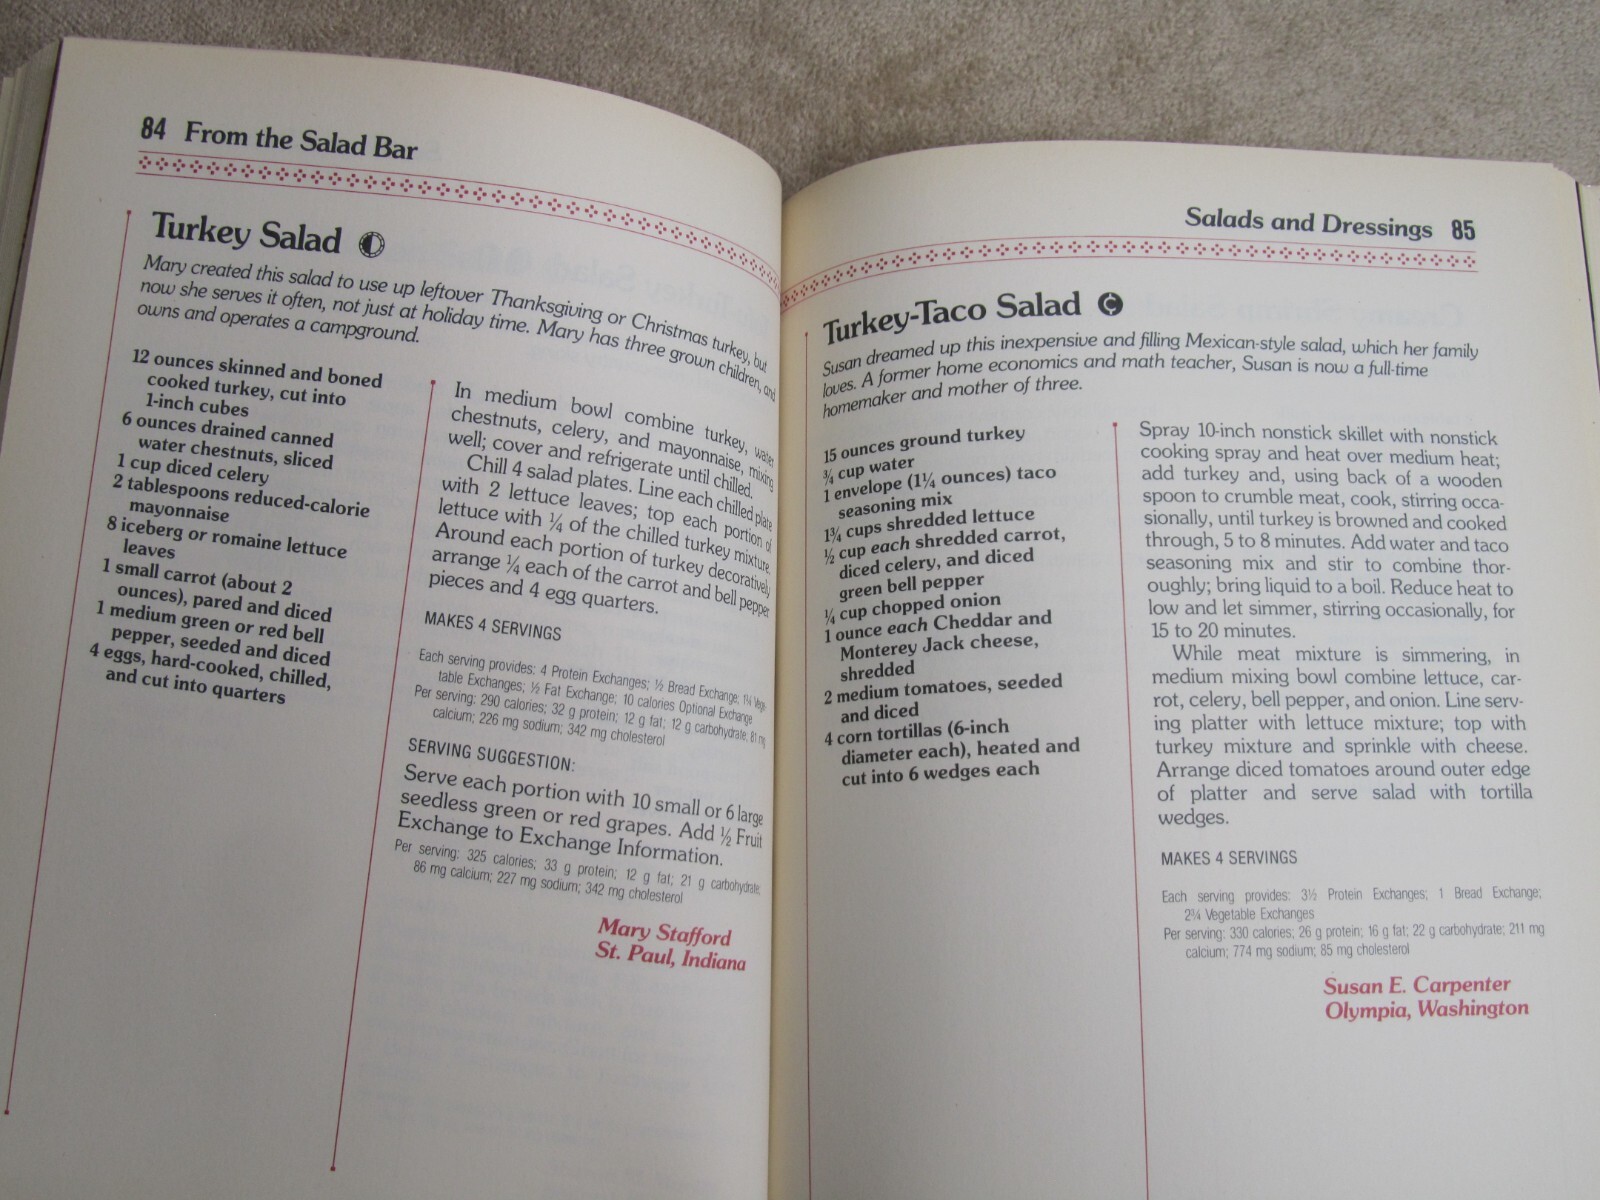 84 From the Salad Bar
Turkey Salad
Mary created this salad to use up leftover Thanksgiving or Christmas turkey, but
now she serves it often, not just at holiday time. Mary has three grown children, and
owns and operates a campground.
12 ounces skinned and boned
cooked turkey, cut into
1-inch cubes
6 ounces drained canned
water chestnuts, sliced
1 cup diced celery
2 tablespoons reduced-calorie
mayonnaise
8 iceberg or romaine lettuce
leaves
1 small carrot (about 2
ounces), pared and diced
1 medium green or red bell
pepper, seeded and diced
4 eggs, hard-cooked, chilled,
and cut into quarters
In medium bowl combine turkey, water
chestnuts, celery, and mayonnaise, mixing
well; cover and refrigerate until chilled.
Chill 4 salad plates. Line each chilled plate
with 2 lettuce leaves; top each portion of
lettuce with ¼ of the chilled turkey mixture.
Around each portion of turkey decoratively
arrange ¼ each of the carrot and bell pepper
pieces and 4 egg quarters.
MAKES 4 SERVINGS
Each serving provides: 4 Protein Exchanges; ½ Bread Exchange; 1¾ Vege-
table Exchanges; ½ Fat Exchange; 10 calories Optional Exchange
Per serving: 290 calories; 32 g protein; 12 g fat; 12 g carbohydrate; 81 mg
calcium; 226 mg sodium; 342 mg cholesterol
SERVING SUGGESTION:
Serve each portion with 10 small or 6 large
seedless green or red grapes. Add ½ Fruit
Exchange to Exchange Information.
Per serving: 325 calories; 33 g protein; 12 g fat; 21 g carbohydrate;
86 mg calcium; 227 mg sodium; 342 mg cholesterol
Mary Stafford
St. Paul, Indiana
Salads and Dressings 85
Turkey-Taco Salad
Susan dreamed up this inexpensive and filling Mexican-style salad, which her family
loves. A former home economics and math teacher, Susan is now a full-time
homemaker and mother of three.
15 ounces ground turkey
¾ cup water
1 envelope (1¼ ounces) taco
seasoning mix
1¾ cups shredded lettuce
½ cup each shredded carrot,
diced celery, and diced
green bell pepper
¼ cup chopped onion
1 ounce each Cheddar and
Monterey Jack cheese,
shredded
2 medium tomatoes, seeded
and diced
4 corn tortillas (6-inch
diameter each), heated and
cut into 6 wedges each
Spray 10-inch nonstick skillet with nonstick
cooking spray and heat over medium heat;
add turkey and, using back of a wooden
spoon to crumble meat, cook, stirring occa-
sionally, until turkey is browned and cooked
through, 5 to 8 minutes. Add water and taco
seasoning mix and stir to combine thor-
oughly; bring liquid to a boil. Reduce heat to
low and let simmer, stirring occasionally, for
15 to 20 minutes.
While meat mixture is simmering, in
medium mixing bowl combine lettuce, car-
rot, celery, bell pepper, and onion. Line serv-
ing platter with lettuce mixture; top with
turkey mixture and sprinkle with cheese.
Arrange diced tomatoes around outer edge
of platter and serve salad with tortilla
wedges.
MAKES 4 SERVINGS
Each serving provides: 3½ Protein Exchanges; 1 Bread Exchange;
2¾ Vegetable Exchanges
Per serving: 330 calories; 26 g protein; 16 g fat; 22 g carbohydrate; 211 mg
calcium; 774 mg sodium; 85 mg cholesterol
Susan E. Carpenter
Olympia, Washington